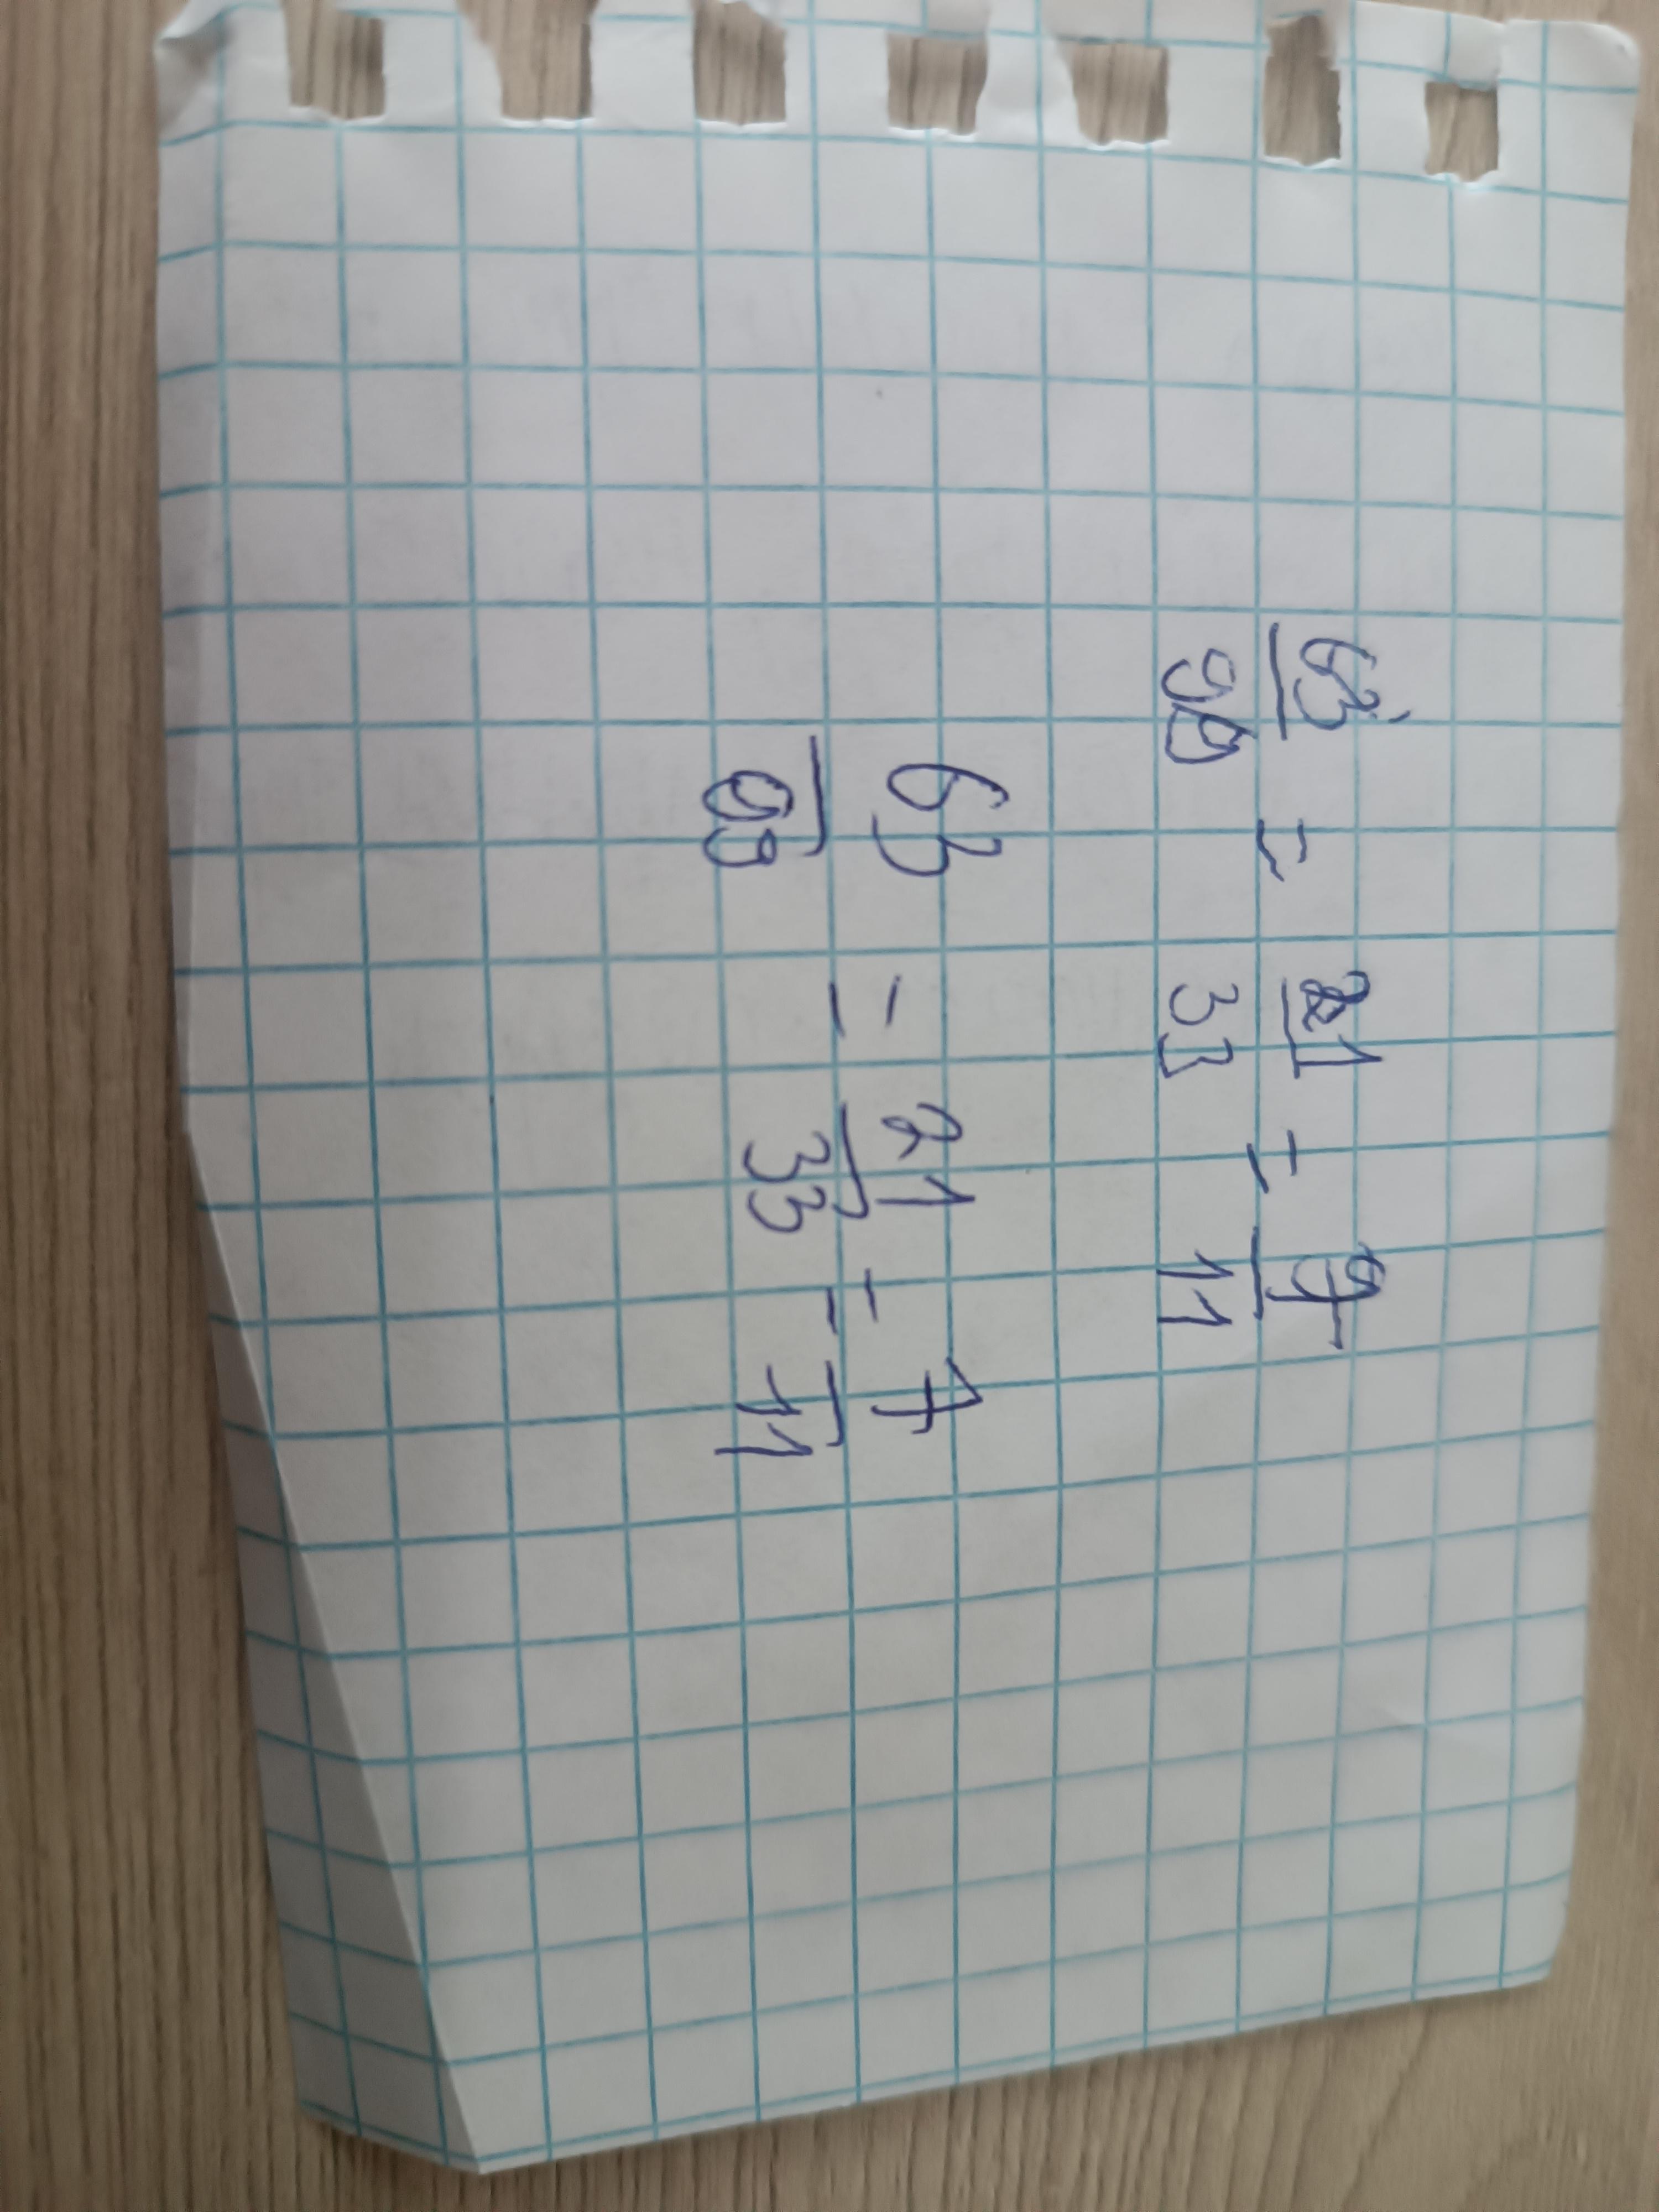 63/99 = 21/33 = 7/11
63/99 = 21/33 = 7/11